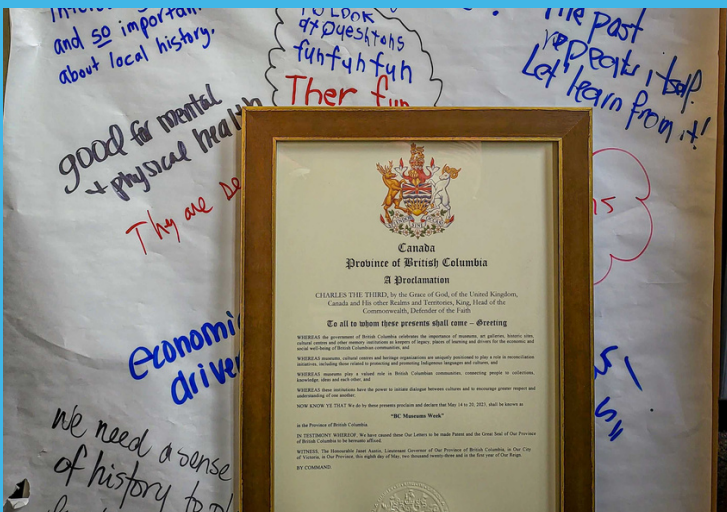 and so important
about local history.
to LOOK
at Queshtons
funfunfun
Ther fun
The past
repeats itself.
Let' learn from it!
good for mental
+ physical health
They are
economic
driver
we need a sense
of history to
Canada
Province of British Columbia
A Proclamation
CHARLES THE THIRD, by the Grace of God, of the United Kingdom,
Canada and His other Realms and Territories, King, Head of the
Commonwealth, Defender of the Faith
To all to whom these presents shall come – Greeting
WHEREAS the government of British Columbia celebrates the importance of museums, art galleries, historic sites,
cultural centres and other memory institutions as keepers of legacy, places of learning and drivers for the economic and
social well-being of British Columbian communities, and
WHEREAS museums, cultural centres and heritage organizations are uniquely positioned to play a role in reconciliation
initiatives, including those related to protecting and promoting Indigenous languages and cultures, and
WHEREAS museums play a valued role in British Columbian communities, connecting people to collections,
knowledge, ideas and each other, and
WHEREAS these institutions have the power to initiate dialogue between cultures and to encourage greater respect and
understanding of one another
NOW KNOW YE THAT We do by these presents proclaim and declare that May 14 to 20, 2023, shall be known as
"BC Museums Week"
in the Province of British Columbia.
IN TESTIMONY WHEREOF, We have caused these Our Letters to be made Patent and the Great Seal of Our Province
of British Columbia to be hereunto affixed.
WITNESS, The Honourable Janet Austin, Lieutenant Governor of Our Province of British Columbia, in Our City
of Victoria, in Our Province, this eighth day of May, two thousand twenty-three and in the first year of Our Reign.
BY COMMAND.